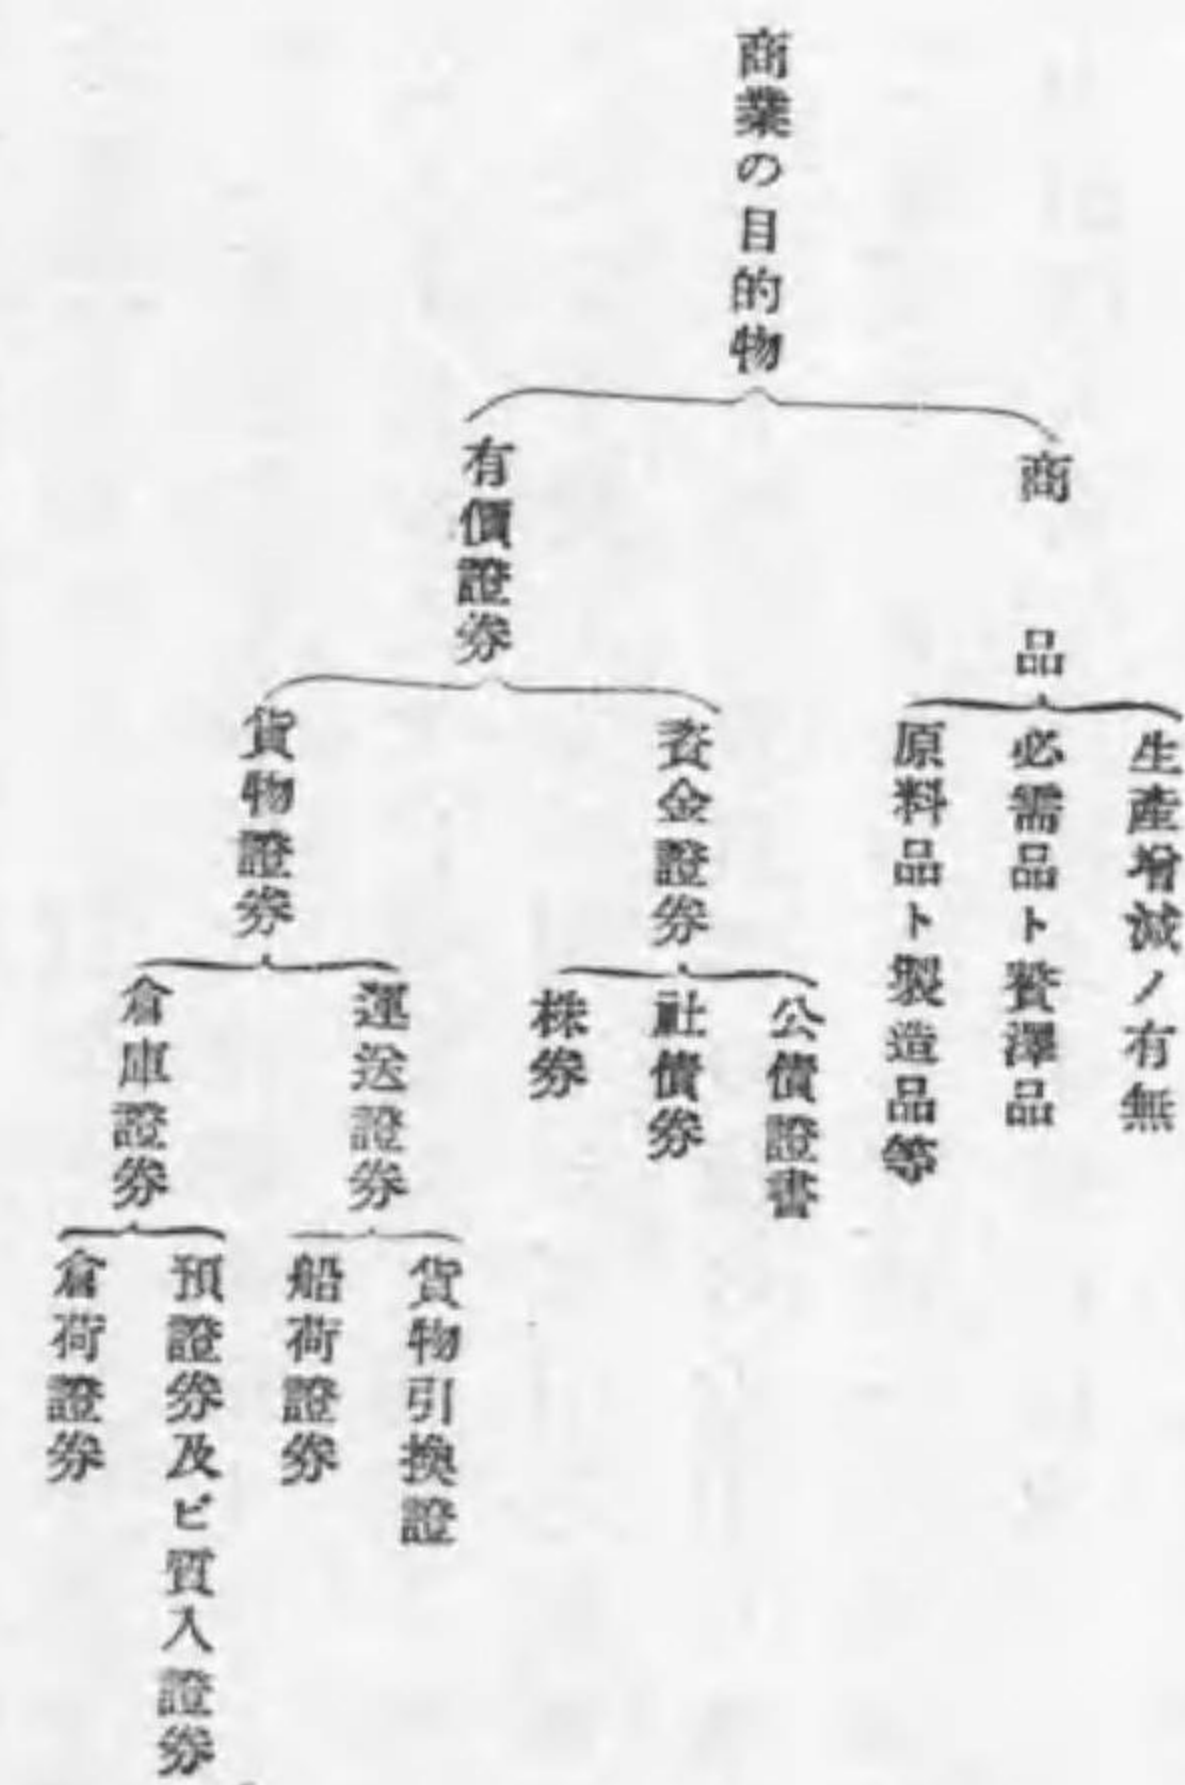 商業の目的物
商品
生產增減ノ有無
必需品ト贅澤品
原料品ト製造品等
有價證券
資金證券
公債證書
社債券
株券
貨物證券
運送證券
貨物引換證
船荷證券
倉庫證券
預證券及ビ質入證券
倉荷證券